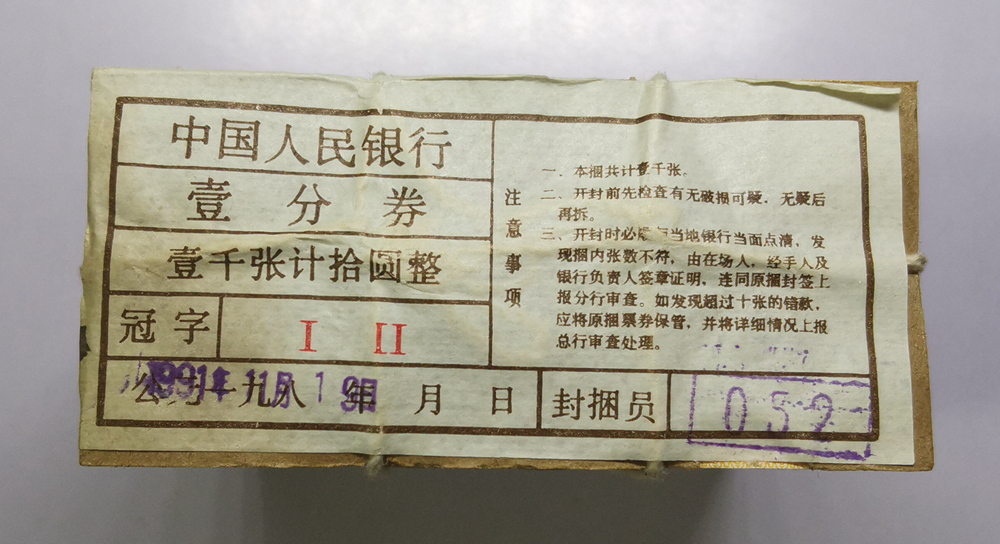 中国人民银行
壹分券
壹千张计拾圆整
冠字
I II
公元一九八 年 月 日
1991年11月19日
注意事项
一、本捆共计壹千张。
二、开封前先检查有无破损可疑，无疑后
再拆。
三、开封时必 当地银行当面点清，发
现捆内张数不符，由在场人，经手人及
银行负责人签章证明，连同原捆封签上
报分行审查。如发现超过十张的错款，
应将原捆票券保管，并将详细情况上报
总行审查处理。
封捆员
052